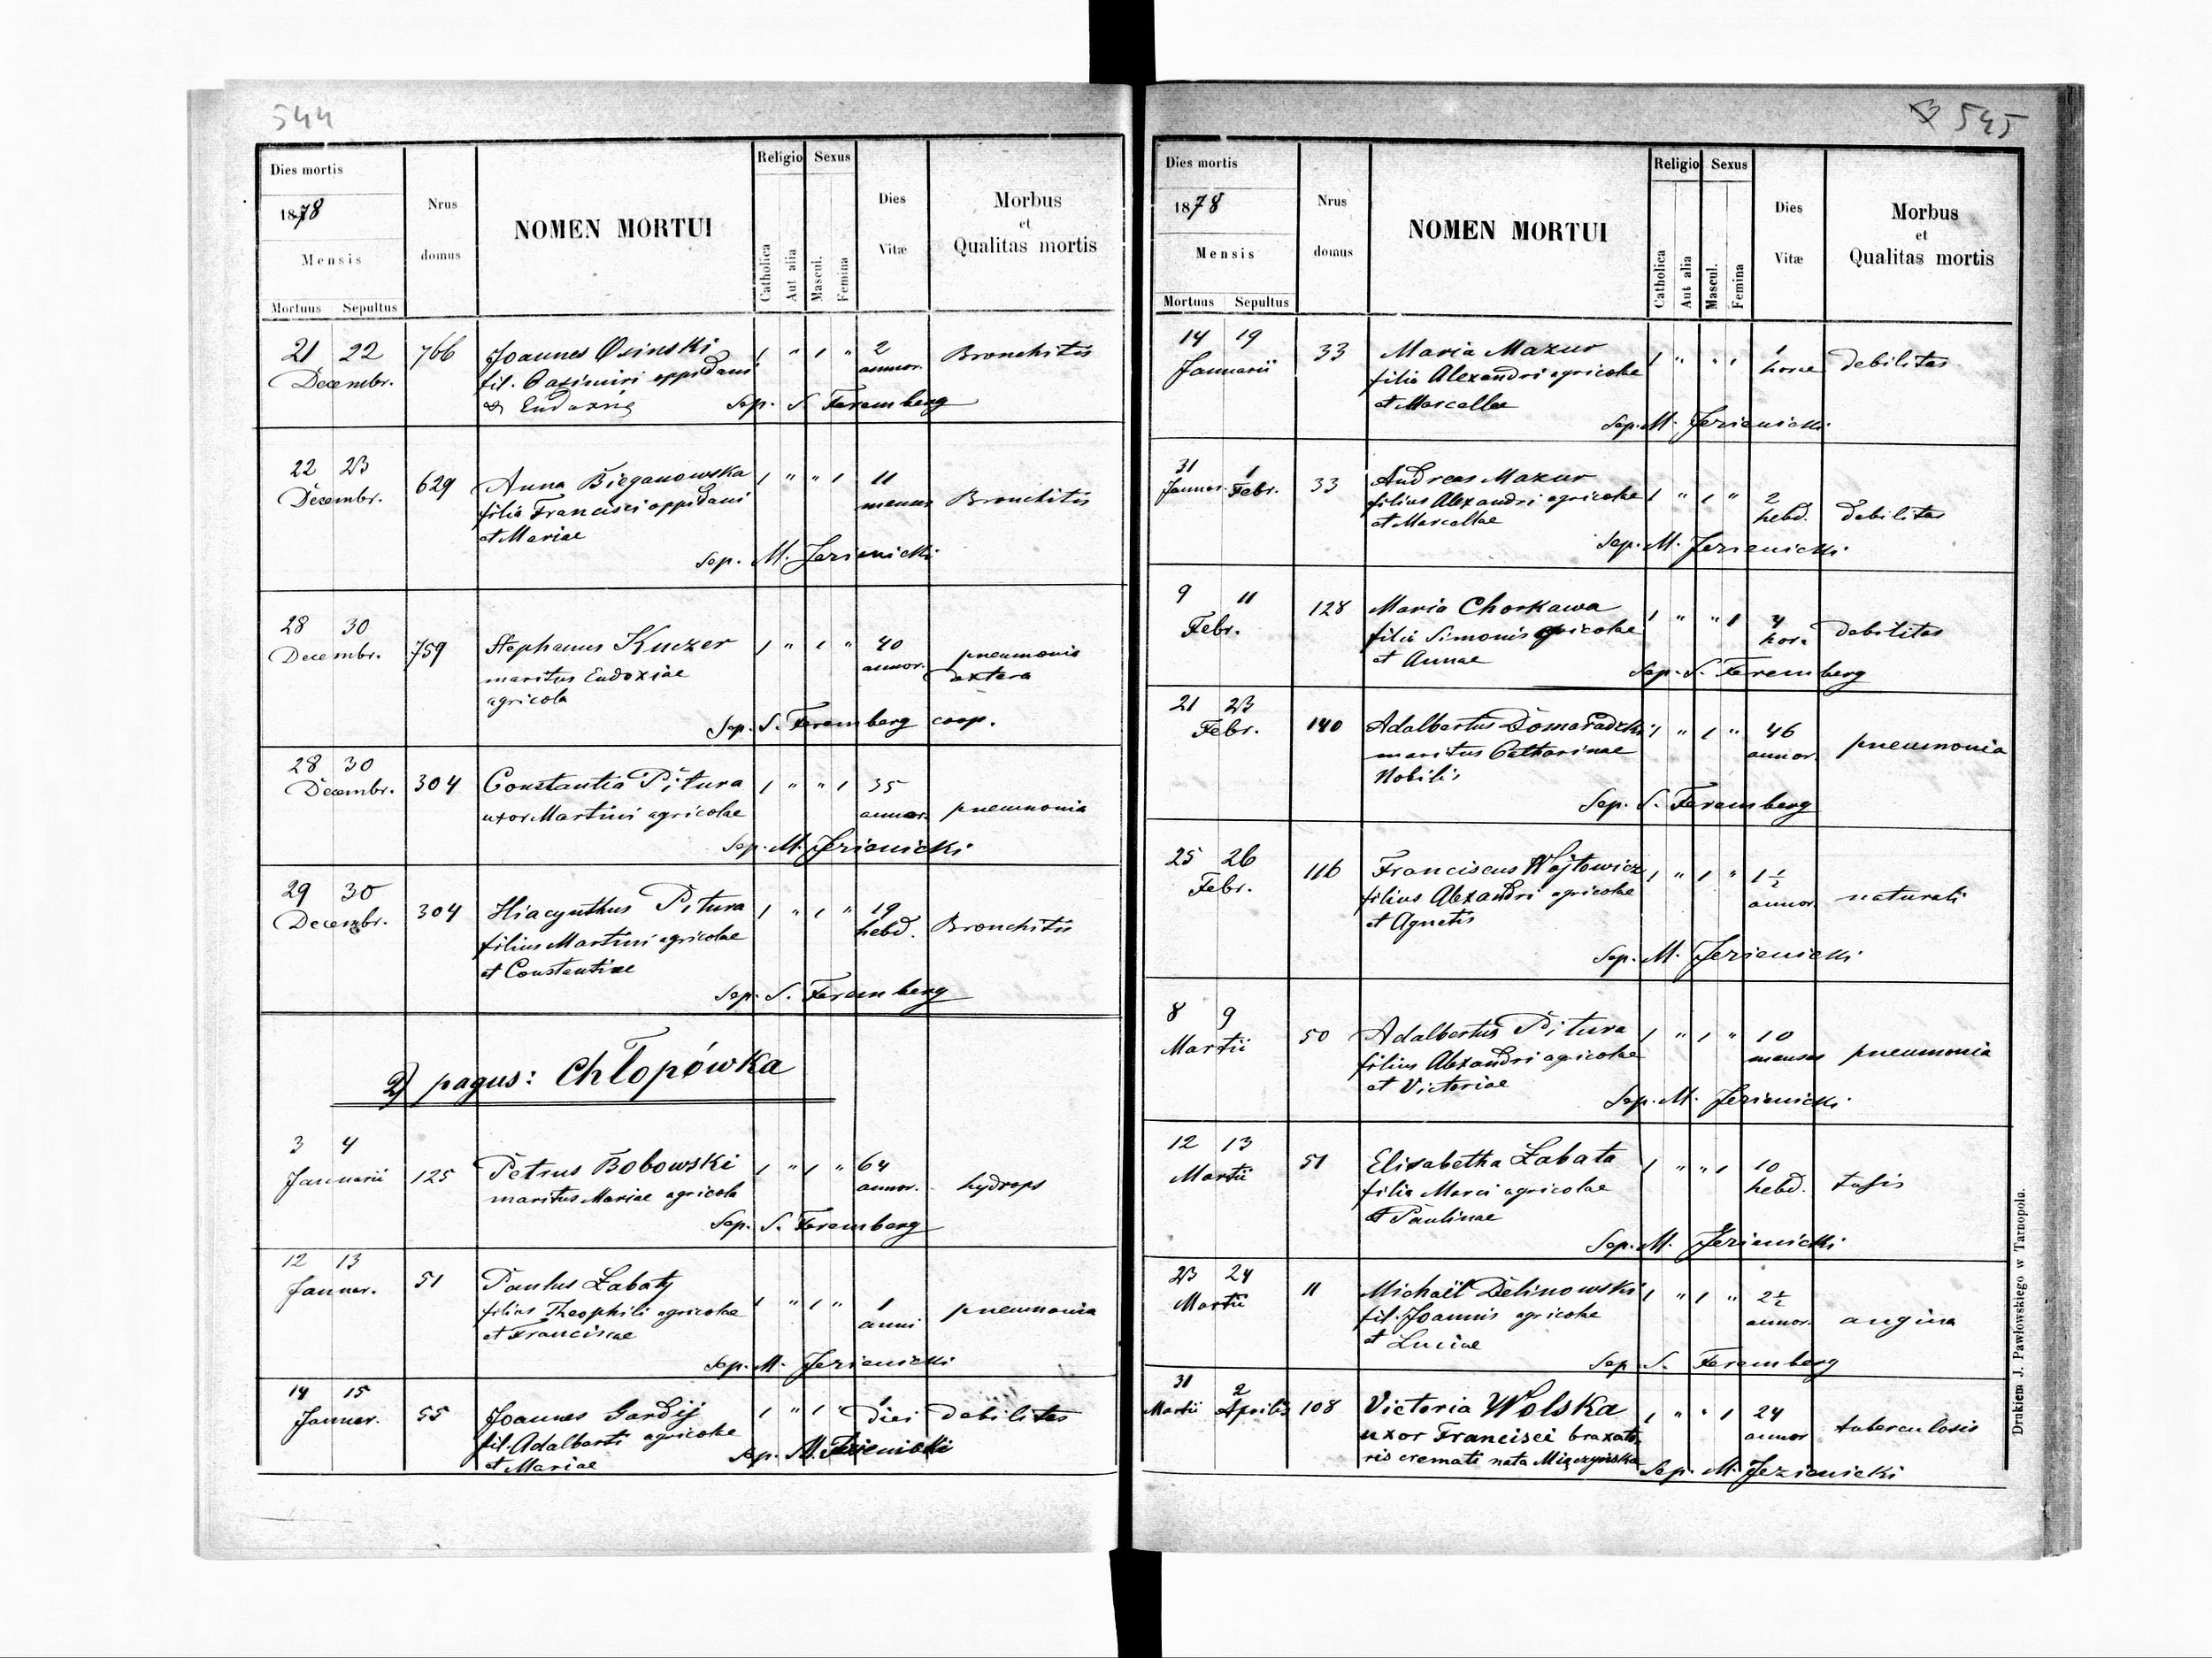 544
Dies mortis
1878
Mensis
Mortuus Sepultus
Nrus
domus
NOMEN MORTUI
Religio
Catholica
Aut alia
Sexus
Mascul.
Femina
Dies
Vitæ
Morbus
et
Qualitas mortis
21 22
Decembr.
766
Joannes Osinski
fil. Casimiri oppidani
& Eudoxiae
1 " 1 "
2
annor.
Bronchitis
Sep. S. Feremberg
22 23
Decembr.
629
Anna Bieganowska
filia Francisci oppidani
et Mariae
1 " " 1
11
menses
Bronchitis
Sep. M. Jezienicki
28 30
Decembr.
759
Stephanus Kuczer
maritus Eudoxiae
agricola
1 " 1 "
40
annor.
pneumonia
dextera
Sep. S. Feremberg coop.
28 30
Decembr.
304
Constantia Pitura
uxor Martini agricolae
1 " " 1
35
annor.
pneumonia
Sep. M. Jezienicki
29 30
Decembr.
304
Hiacynthus Pitura
filius Martini agricolae
et Constantiae
1 " 1 "
19
hebd.
Bronchitis
Sep. S. Feremberg
2) pagus: Chłopówka
3 4
Januarii
125
Petrus Bobowski
maritus Mariae agricola
1 " 1 "
64
annor.
hydrops
Sep. S. Feremberg
12 13
Januar.
51
Paulus Zabaty
filius Theophili agricolae
et Franciscae
1 " 1 "
1
anni
pneumonia
Sep. M. Jezienicki
14 15
Januar.
55
Joannes Gardij
fil. Adalberti agricolae
et Mariae
1 " 1 "
1
diei
debilitas
Sep. M. Jezienicki
545
Dies mortis
1878
Mensis
Mortuus Sepultus
Nrus
domus
NOMEN MORTUI
Religio
Catholica
Aut alia
Sexus
Mascul.
Femina
Dies
Vitæ
Morbus
et
Qualitas mortis
14 19
Januarii
33
Maria Mazur
filia Alexandri agricolae
et Marcellae
1 " " 1
1
horae
debilitas
Sep. M. Jezienicki
31 1
Januar. Febr.
33
Andreas Mazur
filius Alexandri agricolae
et Marcellae
1 " 1 "
2
hebd.
debilitas
Sep. M. Jezienicki
9 11
Febr.
128
Maria Chorkawa
filia Simonis agricolae
et Annae
1 " " 1
4
hor.
debilitas
Sep. S. Feremberg
21 23
Febr.
140
Adalbertus Domaradzki
maritus Catharinae
Nobilis
1 " 1 "
46
annor.
pneumonia
Sep. S. Feremberg
25 26
Febr.
116
Franciscus Wojtowicz
filius Alexandri agricolae
et Agnetis
1 " 1 "
1 1/2
annor.
naturali
Sep. M. Jezienicki
8 9
Martii
50
Adalbertus Pitura
filius Alexandri agricolae
et Victoriae
1 " 1 "
10
menses
pneumonia
Sep. M. Jezienicki
12 13
Martii
51
Elisabetha Zabata
filia Marci agricolae
et Paulinae
1 " " 1
10
hebd.
tussis
Sep. M. Jezienicki
23 24
Martii
11
Michaël Delinowski
fil. Joannis agricolae
et Luciae
1 " 1 "
2 1/2
annor.
angina
Sep. S. Feremberg
31 2
Martii Aprilis
108
Victoria Wolska
uxor Francisci braxato
ris cremati nata Miączyńska
1 " " 1
24
annor
tuberculosis
Sep. M. Jezienicki
Drukiem J. Pawłowskiego w Tarnopolu.